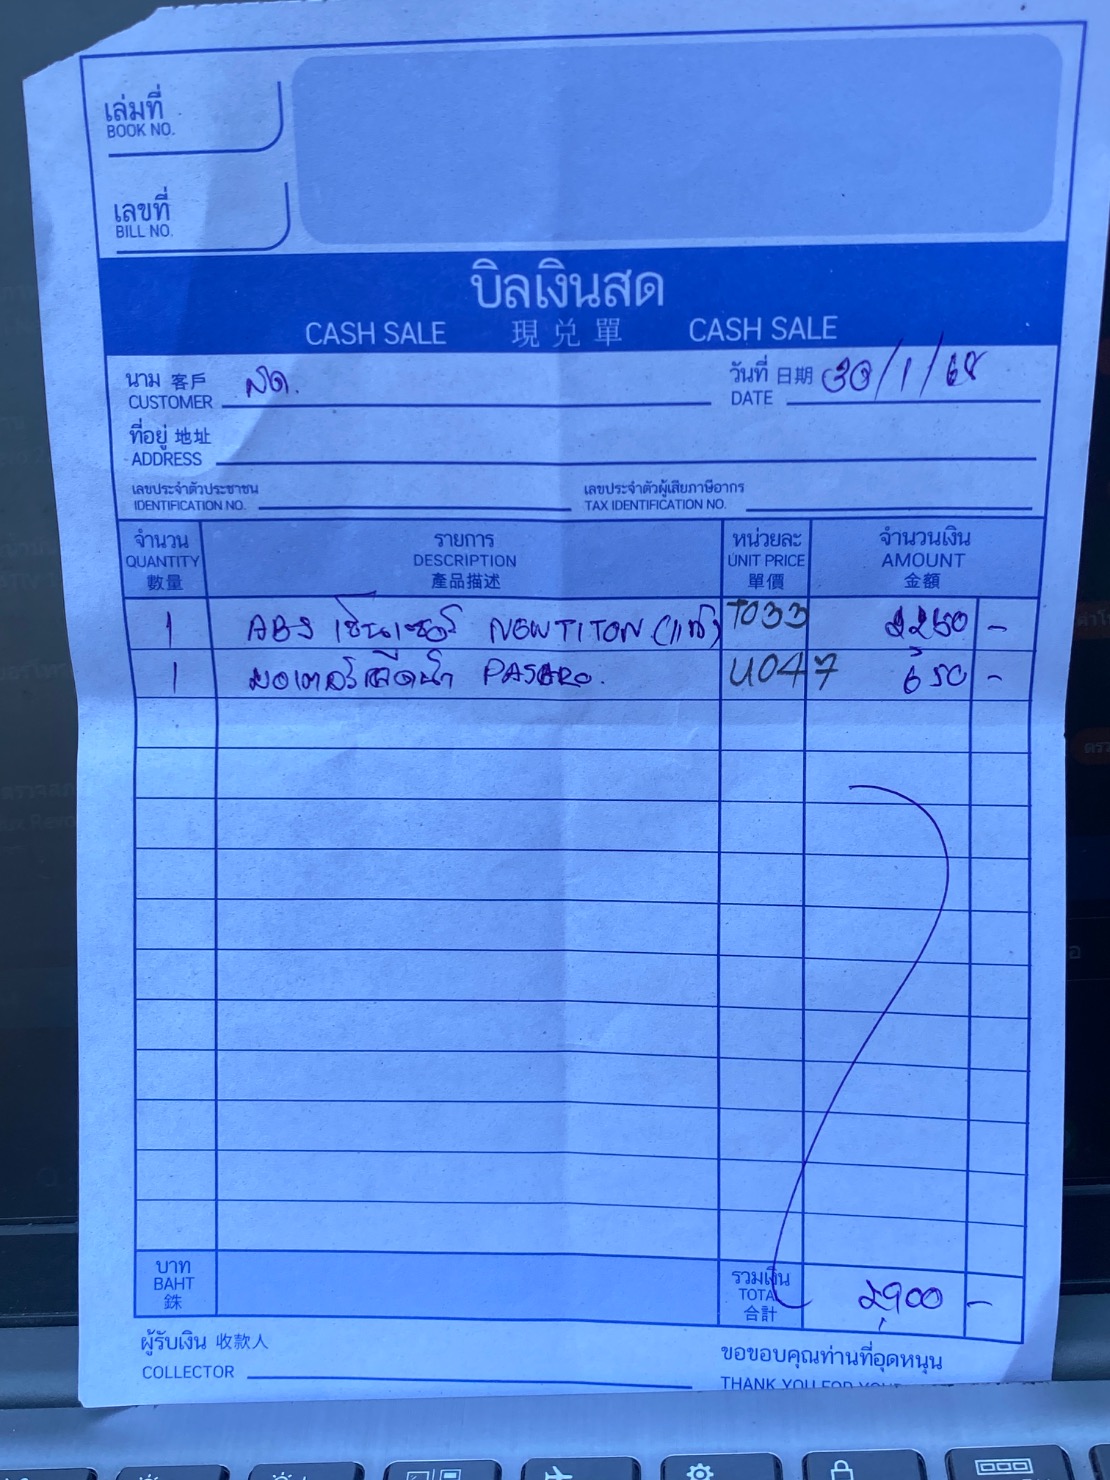 เล่มที่
BOOK NO.
เลขที่
BILL NO.
บิลเงินสด
CASH SALE 現兑單 CASH SALE
นาม 客戶 สด. วันที่ 日期 30/1/68
CUSTOMER DATE
ที่อยู่ 地址
ADDRESS
เลขประจำตัวประชาชน เลขประจำตัวผู้เสียภาษีอากร
IDENTIFICATION NO. TAX IDENTIFICATION NO.
จำนวน รายการ หน่วยละ จำนวนเงิน
QUANTITY DESCRIPTION UNIT PRICE AMOUNT
數量 產品描述 單價 金額
1 ABS เซ็นเซอร์ NEWTITON (แท้) T033 2250 -
1 มอเตอร์ฉีดน้ำ U047 650 -
บาท รวมเงิน
BAHT TOTAL 2900 -
銖 合計
ผู้รับเงิน 收款人 ขอขอบคุณท่านที่อุดหนุน
COLLECTOR THANK YOU FOR YOUR